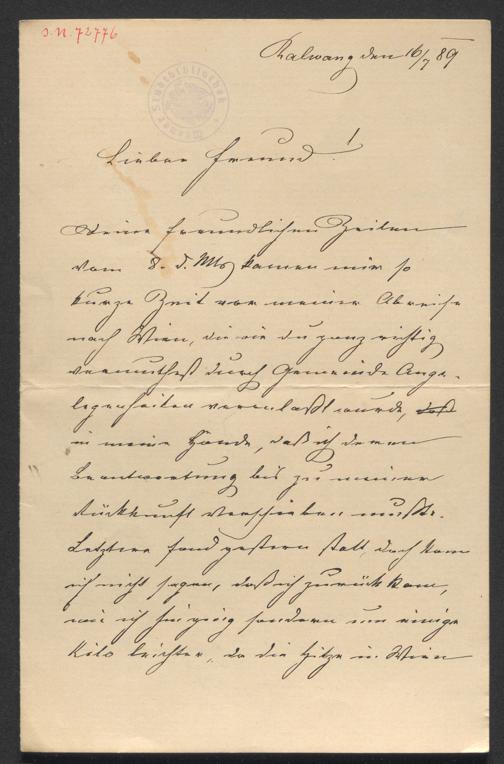 J.N. 72776
Wiener Stadtbibliothek
Kalwang den 16/7 89
Lieber Freund!
Deine freundlichen Zeilen
vom 8. d. Mts kamen mir so
kurze Zeit vor meiner Abreise
nach Wien, die wie du ganz richtig
vermuthest durch Gemeinde Ange-
legenheiten veranlaßt wurde, daß
in meine Hände, daß ich deren
Beantwortung bis zu meiner
Rückkunft verschieben mußte.
Letztere fand gestern statt, doch kann
ich nicht sagen, daß ich zurück kam,
wie ich hinging sondern um einige
Kilo leichter, da die Hitze in Wien